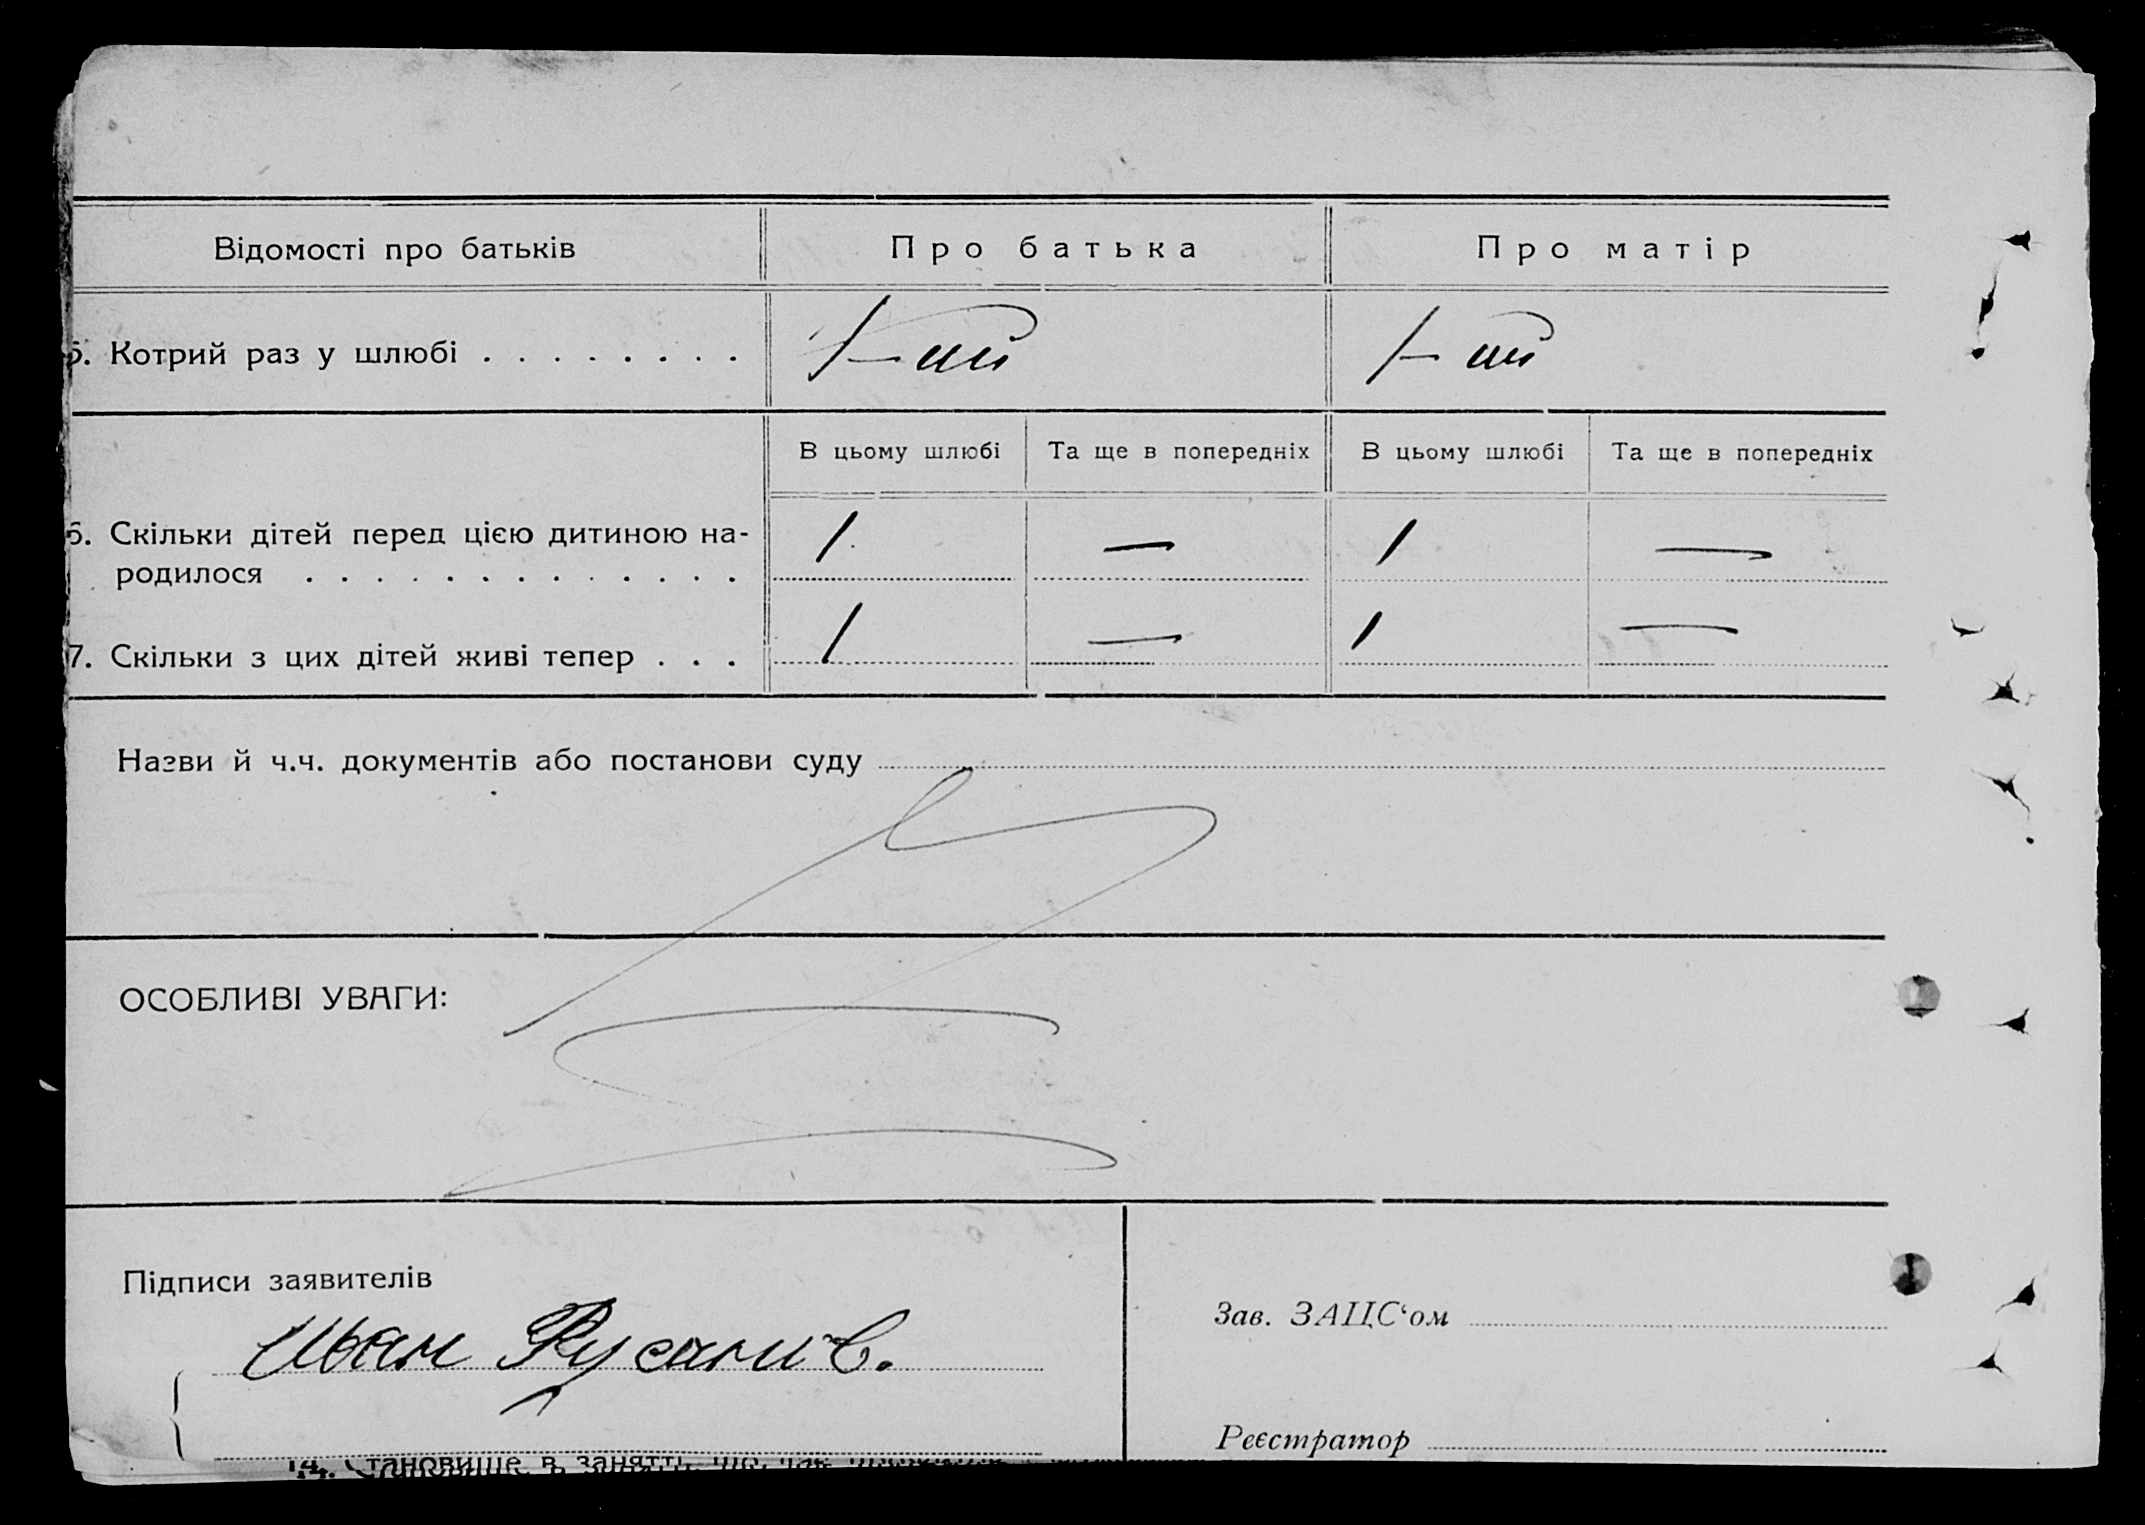 Відомості про батьків Про батька Про матір
5. Котрий раз у шлюбі 1-ий 1-ий
В цьому шлюбі Та ще в попередніх В цьому шлюбі Та ще в попередніх
6. Скільки дітей перед цією дитиною на- 1 — 1 —
родилося
7. Скільки з цих дітей живі тепер 1 — 1 —
Назви й ч.ч. документів або постанови суду
ОСОБЛИВІ УВАГИ:
Підписи заявителів
Зав. ЗАЦС‘ом
Иван Русанив.
Реєстратор
14. Становище в занятті, що